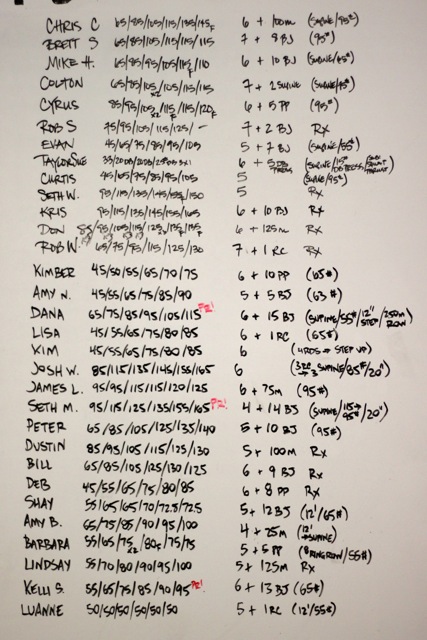 CHRIS C 65/85/105/115/135/145F 6 + 100m (SUPINE/95#)
BRETT S 65/85/105/115/115/115 7 + 8 BJ (95#)
MIKE H. 65/85/95/105/115F/110 6 + 10 BJ (SUPINE/65#)
COLTON 65/75/105x2/105/115/115 7 + 2 SUPINE (SUPINE/95#)
CYRUS 85/95/105x2/115F/115/120F 6 + 5 PP (95#)
ROB S 75/95/105/115/125/- 7 + 2 BJ Rx
EVAN 45/65/75/85/95/105 5 + 7 BJ (SUPINE/55#)
TAYLORSUE 6 + 5 DB PRESS
CURTIS 45/65/75/85/95/105 5 (SUPINE/95#)
SETH W. 95/115/135/145/155F/150 5 Rx
KRIS 95/115/135/145/155/165 6 + 10 BJ Rx
DON 6 + 125m Rx
ROB W. 65/75/95/115/125/130 7 + 1 RC Rx
KIMBER 45/50/55/65/70/75 6 + 10 PP (65#)
AMY N. 45/55/65/75/85/90 5 + 5 BJ (63#)
DANA 65/75/85/95/105/115 PR! 6 + 15 BJ (SUPINE/55#/12" STEP/250m ROW)
LISA 45/55/65/75/80/85 6 + 1 RC (65#)
KIM 45/55/65/75/80/85 6 (4RDS → STEP UP)
JOSH W. 85/115/135/145/155/165 6 (SUPINE/85#/20")
JAMES L. 95/95/115/115/120/125 6 + 75m (95#)
SETH M. 95/115/125/135/155/165 PR! 4 + 14 BJ (SUPINE/115→95#/20")
PETER 65/85/105/125/135/140 5 + 10 BJ (95#)
DUSTIN 85/95/105/115/125/130 5 + 100m Rx
BILL 65/85/105/125/130/125 6 + 9 BJ Rx
DEB 45/55/65/75/80/85 6 + 8 PP Rx
SHAY 55/65/65/70/72.5/725 5 + 12 BJ (12'/65#)
AMY B. 65/75/85/90/95/100 4 + 25m (12' →SUPINE)
BARBARA 55/65/75x2/80F/75/75 5 + 5 PP (RINGROW/55#)
LINDSAY 55/70/80/90/95/100 5 + 125m Rx
KELLI S. 55/65/75/85/90/95 PR! 6 + 13 BJ (65#)
LUANNE 50/50/50/50/50/50 5 + 1 RC (12'/55#)